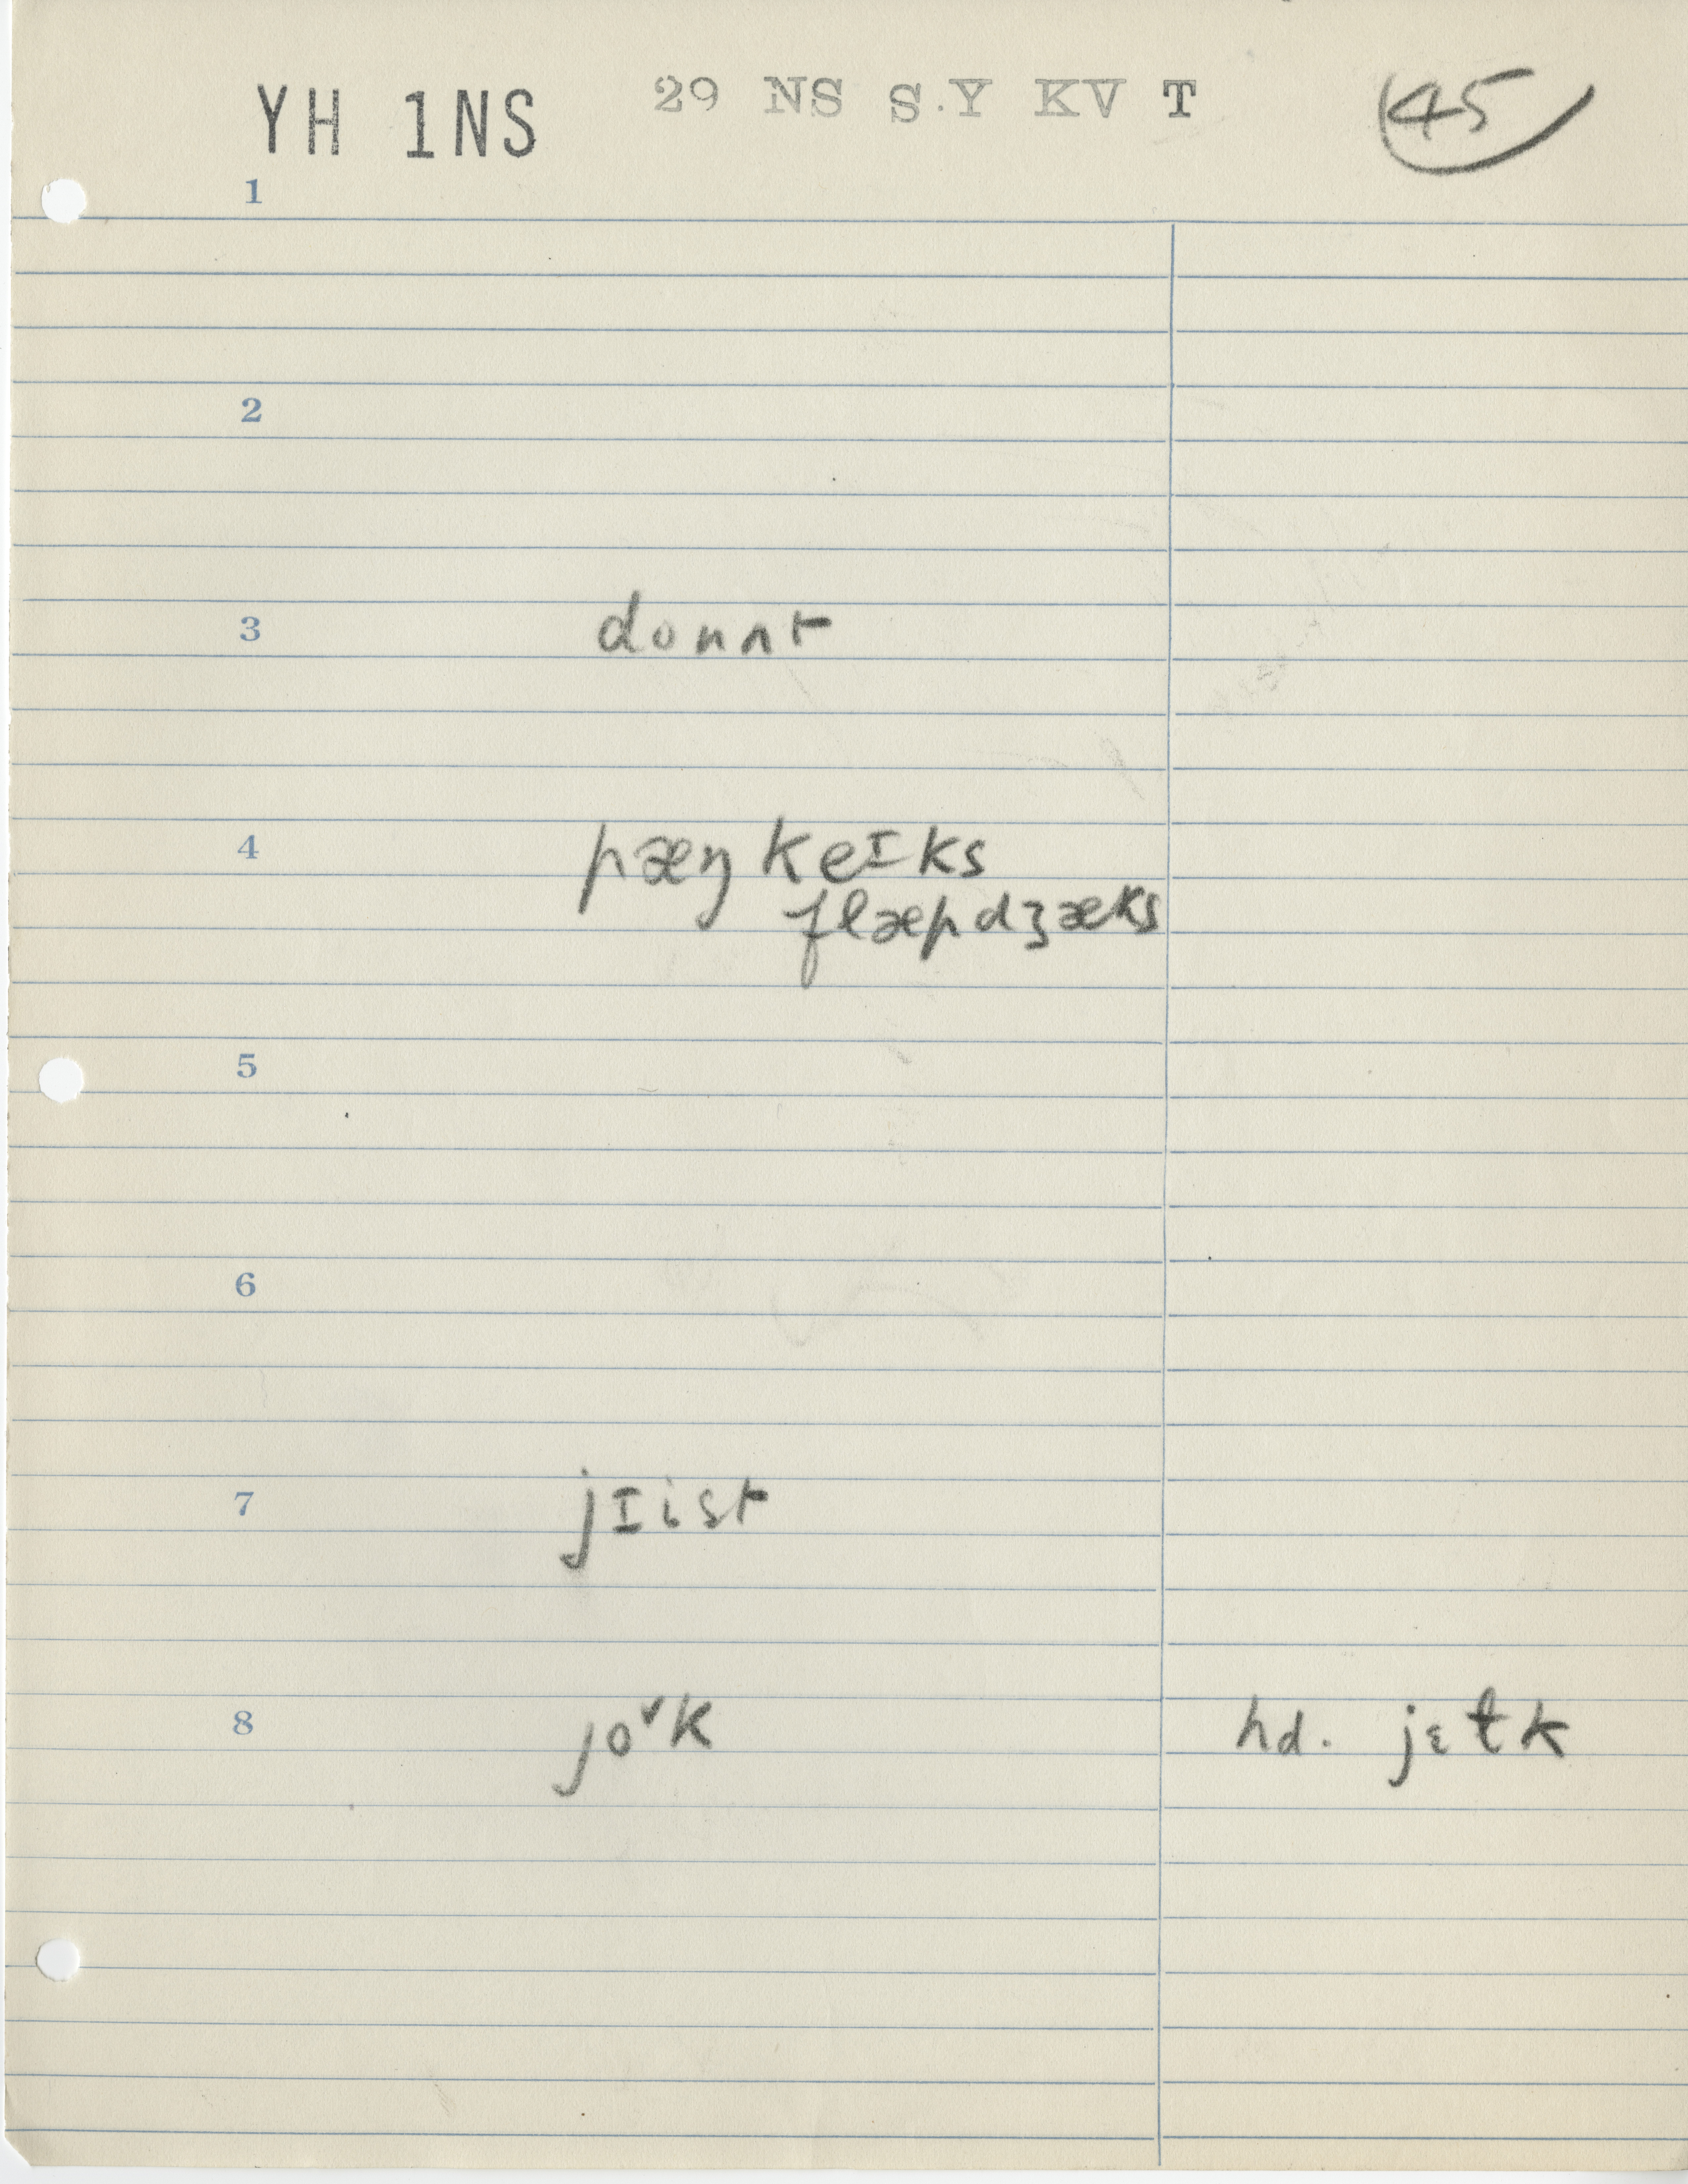 YH 1NS 29 NS S.Y KV T 45
1
2
3 donʌt
4 pæŋkeɪks
flæpdʒæks
5
6
7 jɪist
8 jo˅k hd. jɛɫk